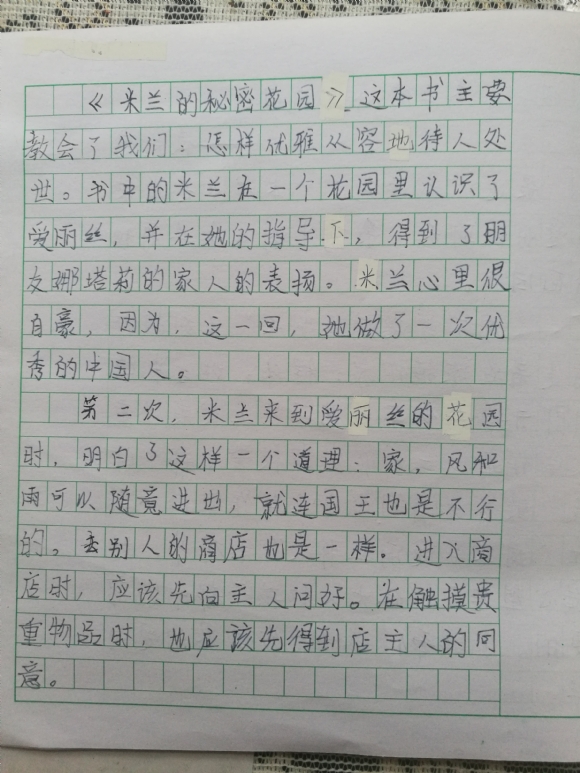 《米兰的秘密花园》这本书主要
教会了我们：怎样优雅从容地待人处
世。书中的米兰在一个花园里认识了
爱丽丝，并在她的指导下，得到了朋
友娜塔莉的家人的表扬。米兰心里很
自豪，因为，这一回，她做了一次优
秀的中国人。
第二次，米兰来到爱丽丝的花园
时，明白了这样一个道理：家，风和
雨可以随意进出，就连国王也是不行
的。去别人的商店也是一样。进入商
店时，应该先向主人问好。在触摸贵
重物品时，也应该先得到店主人的同
意。